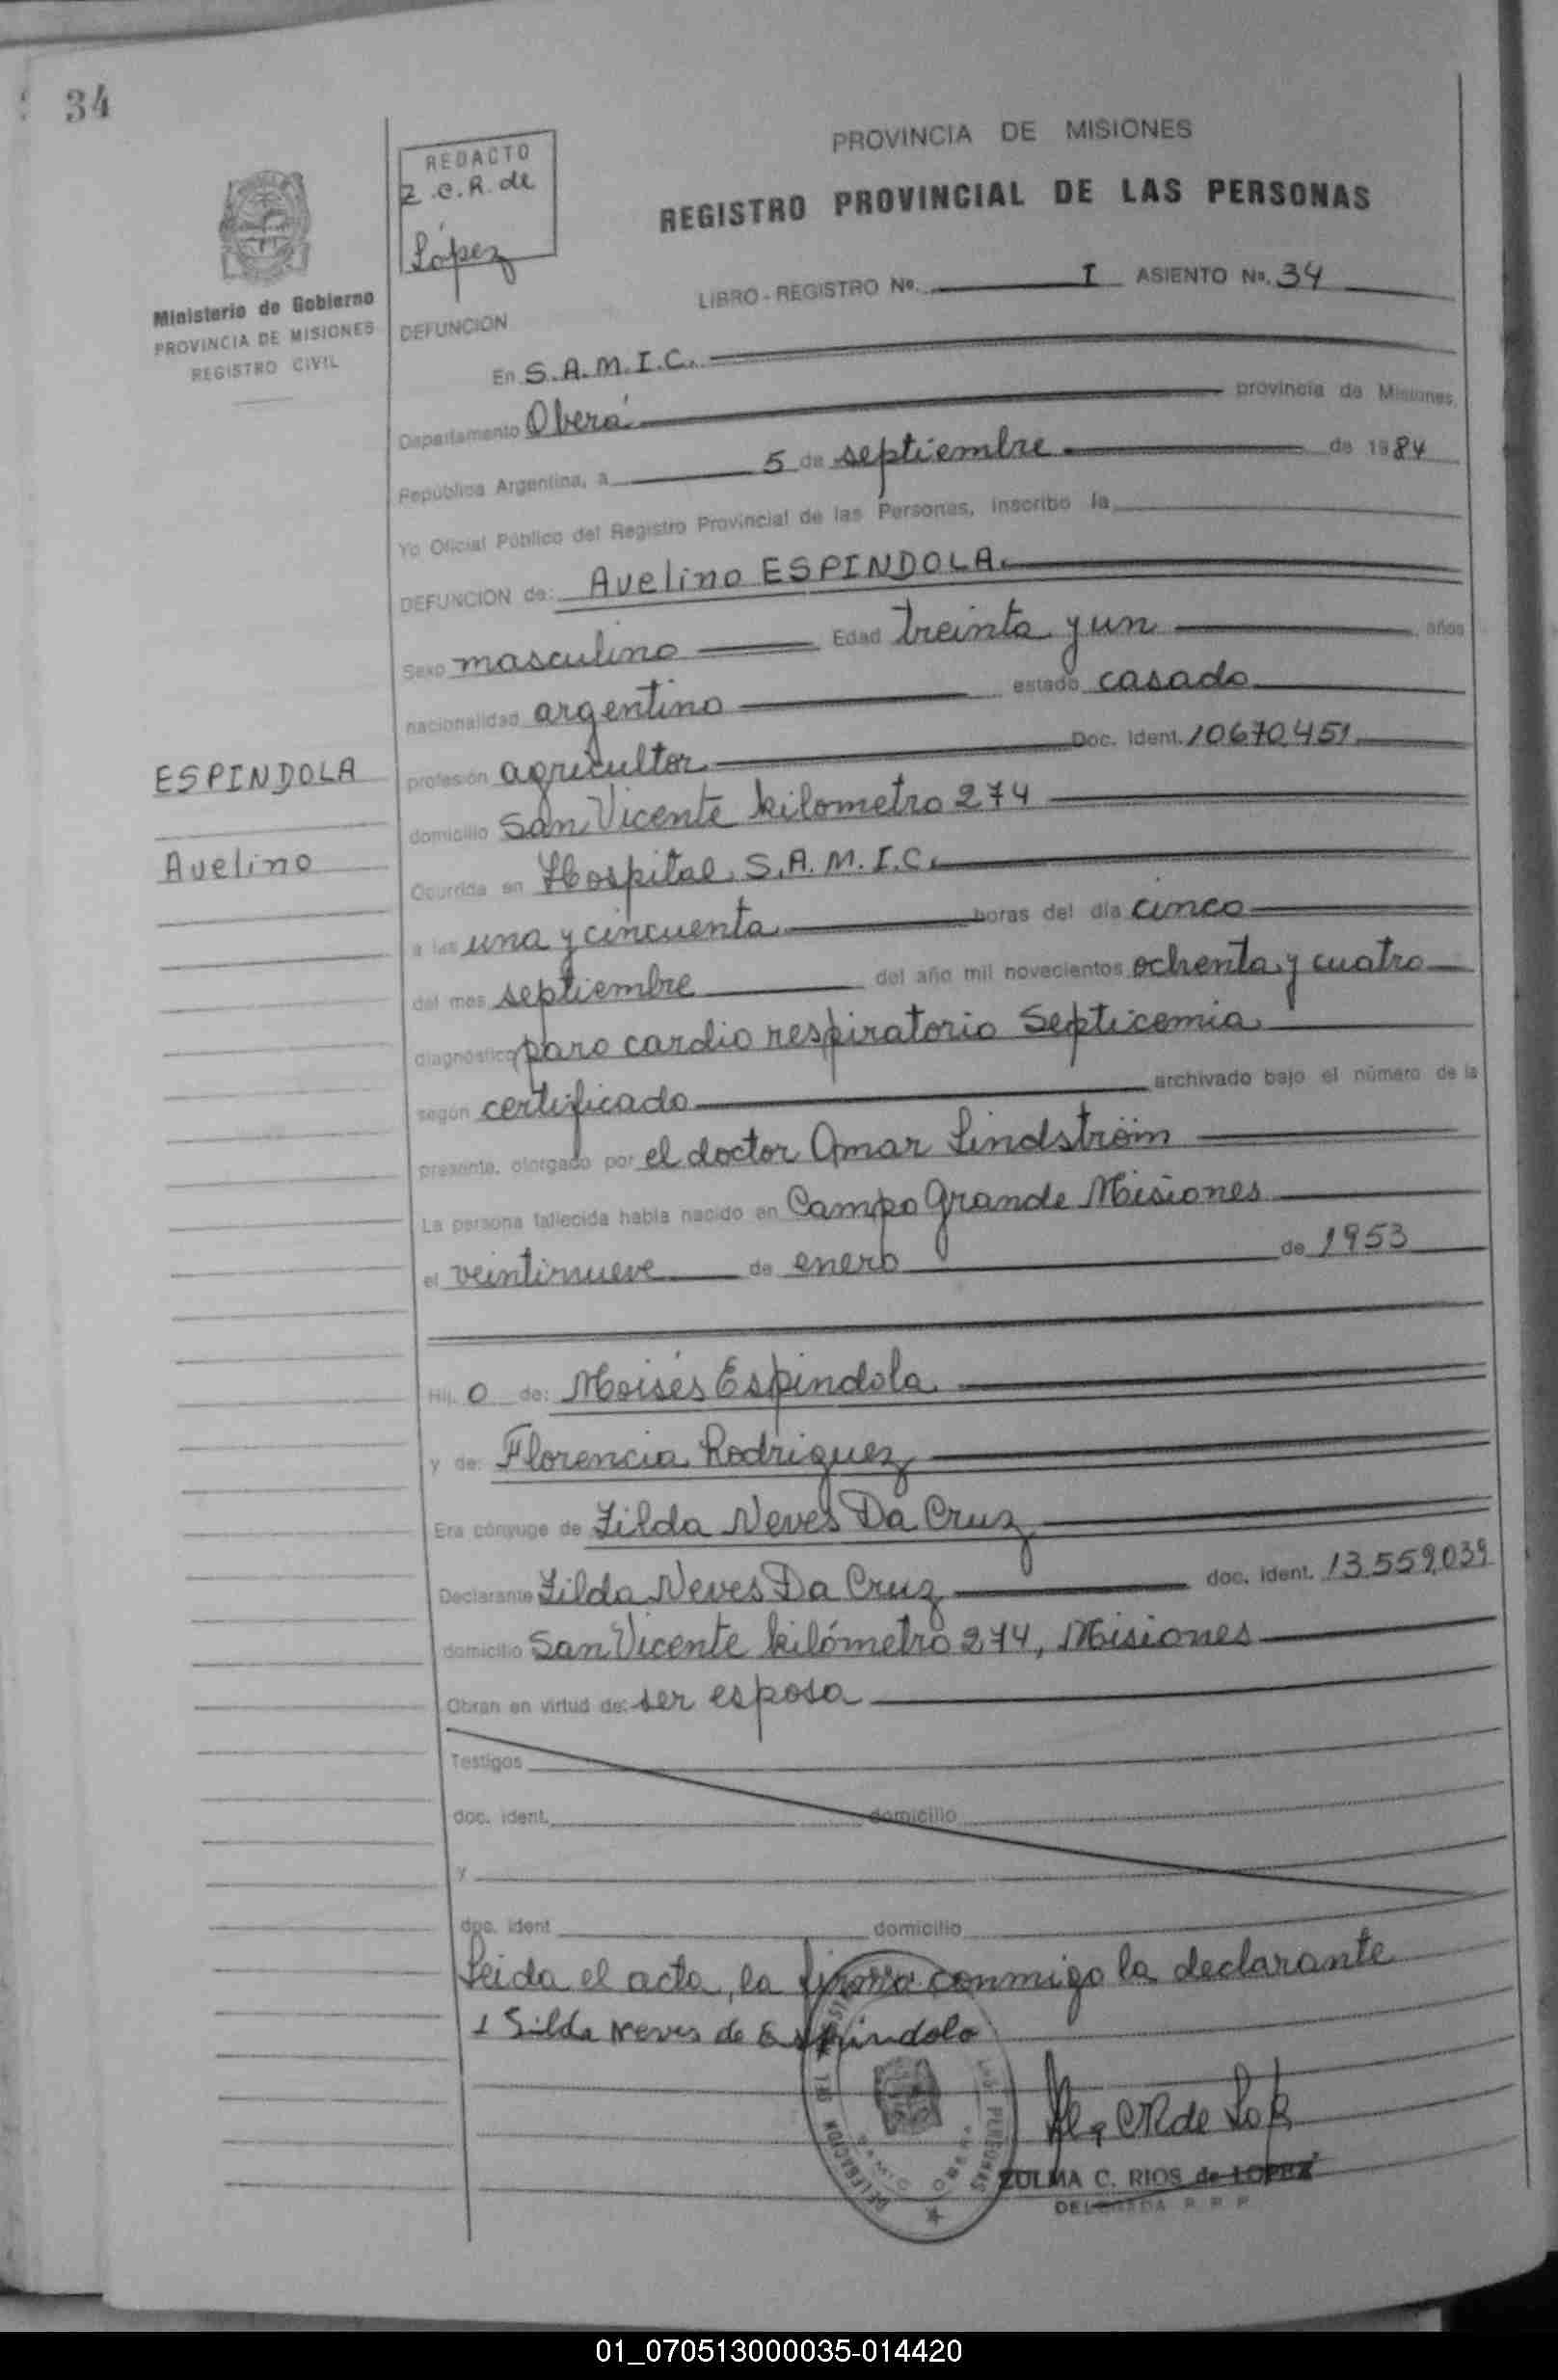 34
REDACTO
Z.C.R. de
López
Ministerio de Gobierno
PROVINCIA DE MISIONES
REGISTRO CIVIL
PROVINCIA DE MISIONES
REGISTRO PROVINCIAL DE LAS PERSONAS
LIBRO - REGISTRO Nº. I ASIENTO Nº. 34
DEFUNCION
En S.A.M.I.C.
Departamento Oberá provincia de Misiones,
República Argentina, a 5 de septiembre de 1984
Yo Oficial Público del Registro Provincial de las Personas, inscribo la
DEFUNCION de: Avelino ESPINDOLA
Sexo masculino Edad treinta y un años
nacionalidad argentino estado casado
profesión agricultor Doc. Ident. 10670451
domicilio San Vicente kilometro 274
Ocurrida en Hospital S.A.M.I.C.
a las una y cincuenta horas del día cinco
del mes septiembre del año mil novecientos ochenta y cuatro
diagnóstico paro cardio respiratorio Septicemia
según certificado archivado bajo el número de la
presente, otorgado por el doctor Omar Lindström
La persona fallecida había nacido en Campo Grande Misiones
el veintinueve de enero de 1953
Hij o de: Moisés Espindola
y de: Florencia Rodriguez
Era cónyuge de Zilda Neves Da Cruz
Declarante Zilda Neves Da Cruz doc. ident. 13.559.039
domicilio San Vicente kilómetro 274, Misiones
Obran en virtud de: ser esposa
Testigos
doc. ident. domicilio
y
doc. ident domicilio
Leida el acta, la firma conmigo la declarante
Silda neves de Espindola
ESPINDOLA
Avelino
DELEGACION
SAMIC OBERA
LAS PERSONAS
ZULMA C. RIOS de LOPEZ
DELEGADA R. P. P.
01_070513000035-014420